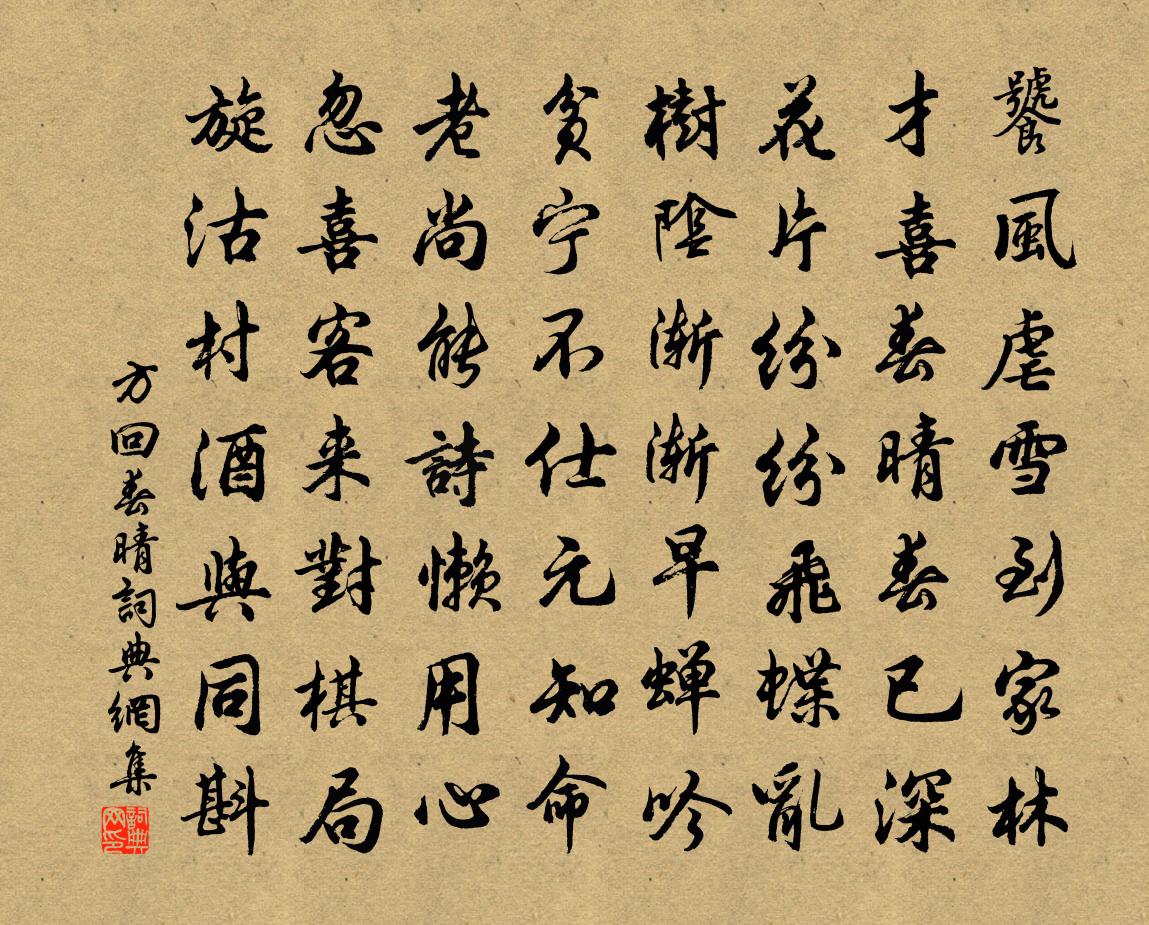 饕風虐雪到家林
才喜春晴春已深
花片紛紛飛蝶亂
樹陰漸漸早蟬吟
貧宁不仕元知命
老尚能詩懶用心
忽喜客来對棋局
旋沽村酒與同斟
方回春晴詞典網集
詞典網印